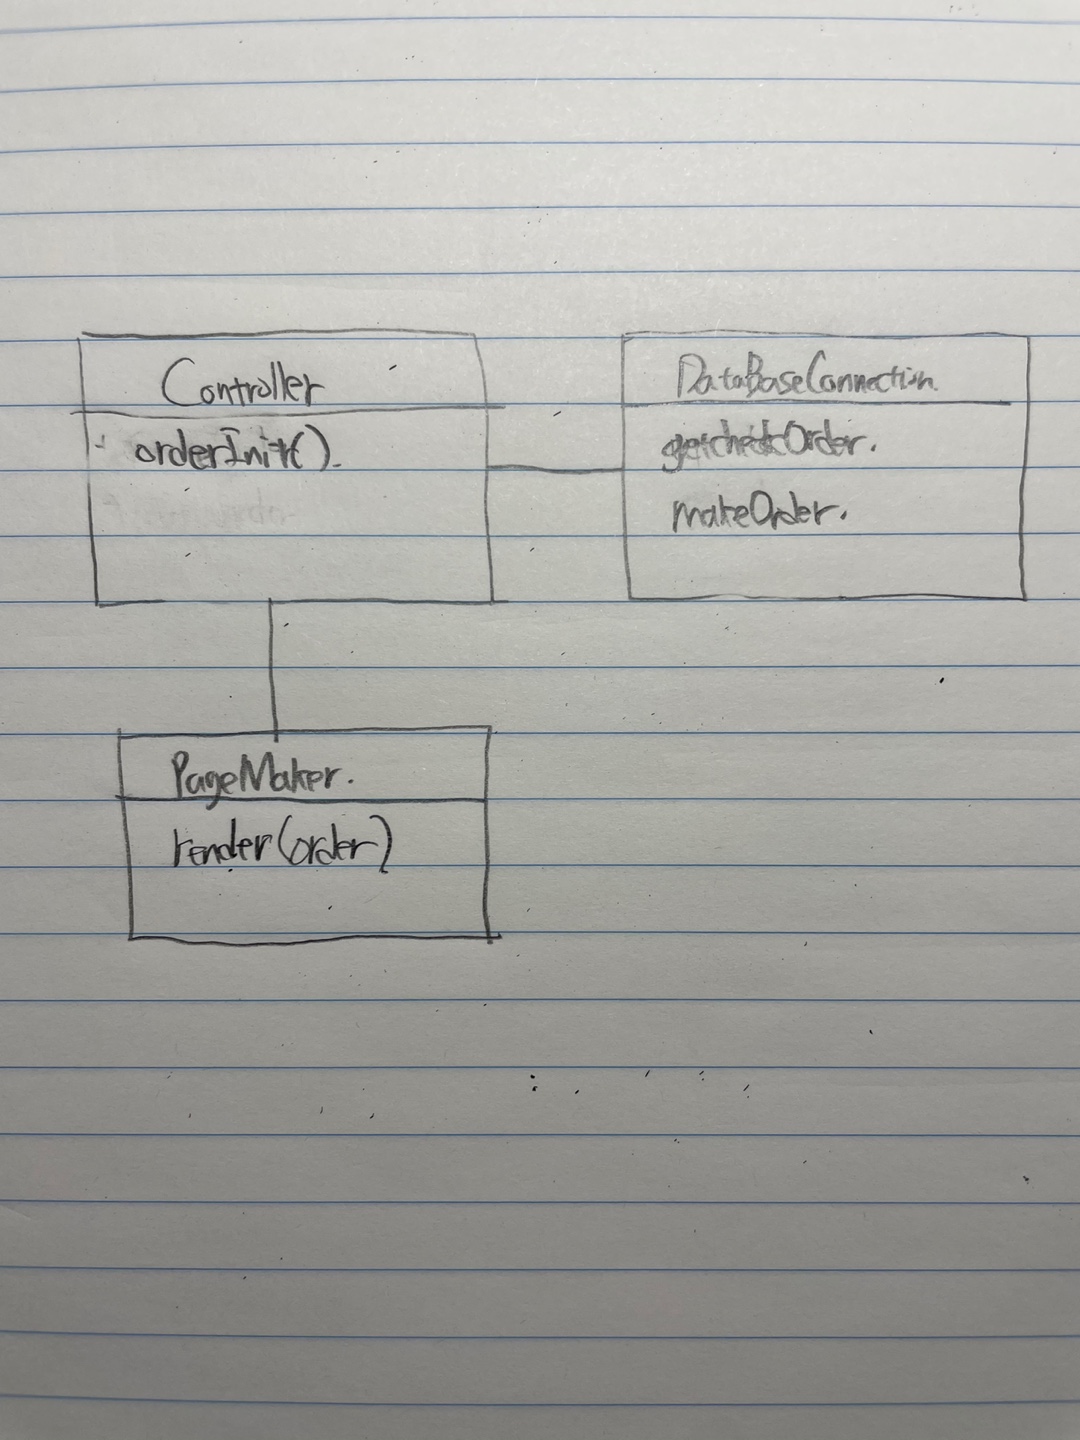 Controller
orderInit().
DataBaseConnection.
makeOrder.
PageMaker.
render(order)